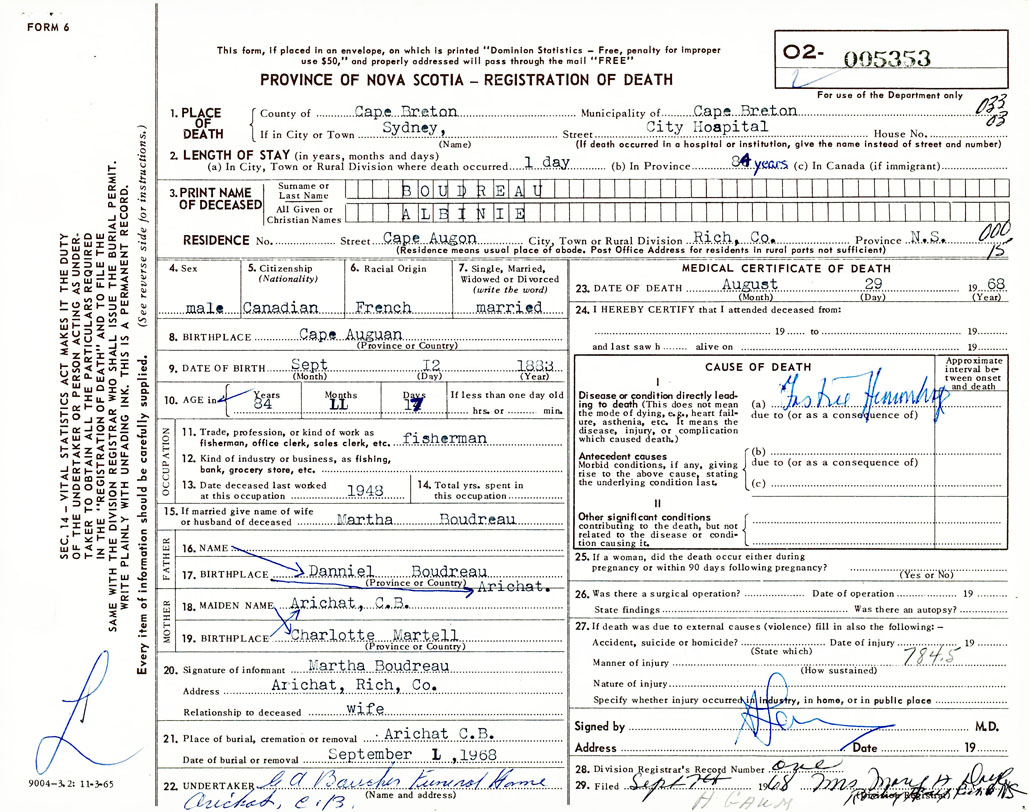 FORM 6
This form, if placed in an envelope, on which is printed "Dominion Statistics – Free, penalty for improper
use $50," and properly addressed will pass through the mail "FREE"
PROVINCE OF NOVA SCOTIA – REGISTRATION OF DEATH
O2- 005353
For use of the Department only
033
03
1. PLACE OF DEATH
County of Cape Breton Municipality of Cape Breton
If in City or Town Sydney, Street City Hospital House No.
(Name) (If death occurred in a hospital or institution, give the name instead of street and number)
2. LENGTH OF STAY (in years, months and days)
(a) In City, Town or Rural Division where death occurred 1 day (b) In Province 84 years (c) In Canada (if immigrant)
3. PRINT NAME OF DECEASED
Surname or Last Name BOUDREAU
All Given or Christian Names ALBINIE
RESIDENCE No. Street Cape Augon City, Town or Rural Division Rich, Co. Province N.S.
000
15
(Residence means usual place of abode. Post Office Address for residents in rural parts not sufficient)
4. Sex
male
5. Citizenship
(Nationality)
Canadian
6. Racial Origin
French
7. Single, Married,
Widowed or Divorced
(write the word)
married
8. BIRTHPLACE Cape Auguan
(Province or Country)
9. DATE OF BIRTH Sept I2 1883
(Month) (Day) (Year)
10. AGE in Years Months Days If less than one day old
84 LL 17 hrs. or min.
OCCUPATION
11. Trade, profession, or kind of work as
fisherman, office clerk, sales clerk, etc. fisherman
12. Kind of industry or business, as fishing,
bank, grocery store, etc.
13. Date deceased last worked
at this occupation 1948
14. Total yrs. spent in
this occupation
15. If married give name of wife
or husband of deceased Martha Boudreau
FATHER
16. NAME
17. BIRTHPLACE Danniel Boudreau
(Province or Country) Arichat.
MOTHER
18. MAIDEN NAME Arichat, C.B.
19. BIRTHPLACE Charlotte Martell
(Province or Country)
20. Signature of informant Martha Boudreau
Address Arichat, Rich, Co.
Relationship to deceased wife
21. Place of burial, cremation or removal Arichat C.B.
Date of burial or removal September L, 1968
22. UNDERTAKER Funeral Home
(Name and address)
Arichat, C.B.
MEDICAL CERTIFICATE OF DEATH
23. DATE OF DEATH August 29 1968
(Month) (Day) (Year)
24. I HEREBY CERTIFY that I attended deceased from:
19 to 19
and last saw h alive on 19
CAUSE OF DEATH
Approximate
interval be-
tween onset
and death
I
Disease or condition directly lead-
ing to death (This does not mean
the mode of dying, e.g., heart fail-
ure, asthenia, etc. It means the
disease, injury, or complication
which caused death.)
(a)
due to (or as a consequence of)
Antecedent causes
Morbid conditions, if any, giving
rise to the above cause, stating
the underlying condition last.
(b)
due to (or as a consequence of)
(c)
II
Other significant conditions
contributing to the death, but not
related to the disease or condi-
tion causing it.
25. If a woman, did the death occur either during
pregnancy or within 90 days following pregnancy?
(Yes or No)
26. Was there a surgical operation? Date of operation 19
State findings Was there an autopsy?
27. If death was due to external causes (violence) fill in also the following: –
Accident, suicide or homicide? Date of injury 19
(State which)
784.5
Manner of injury
(How sustained)
Nature of injury
Specify whether injury occurred in industry, in home, or in public place
Signed by M.D.
Address Date 19
28. Division Registrar's Record Number one
29. Filed Sept 1968
(Division Registrar)
SEC. 14 – VITAL STATISTICS ACT MAKES IT THE DUTY
OF THE UNDERTAKER OR PERSON ACTING AS UNDER-
TAKER TO OBTAIN ALL THE PARTICULARS REQUIRED
IN THE "REGISTRATION OF DEATH" AND TO FILE THE
SAME WITH THE DIVISION REGISTRAR WHO SHALL ISSUE THE BURIAL PERMIT.
WRITE PLAINLY WITH UNFADING INK. THIS IS A PERMANENT RECORD.
Every item of information should be carefully supplied. (See reverse side for instructions.)
9004-3.2: 11-3-65